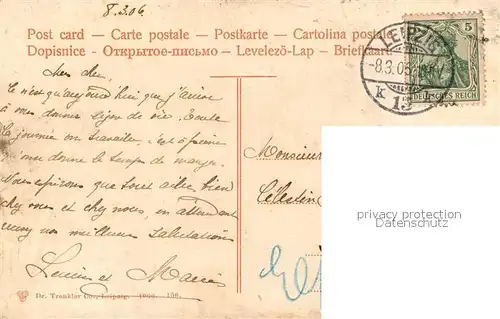 8.3.06
Post card — Carte postale — Postkarte — Cartolina postale
Dopisnice - Открытое-письмо - Levelező-Lap - Briefkaart
LEIPZIG
-8.3.06
K 13
5
DEUTSCHES REICH
Ce n'est qu'aujourd'hui que j'arrive
à vous donner signe de vie. Toute
la journée on travaille, c'est à peine
qu'on donne le temps de manger.
Nous espérons que tout aille bien
chez vous et chez nous, en attendant
nos meilleures salutations
Louis et Marie
Monsieur
Célestin
privacy protection
Datenschutz
Dr. Trenkler Co., Leipzig. 156.